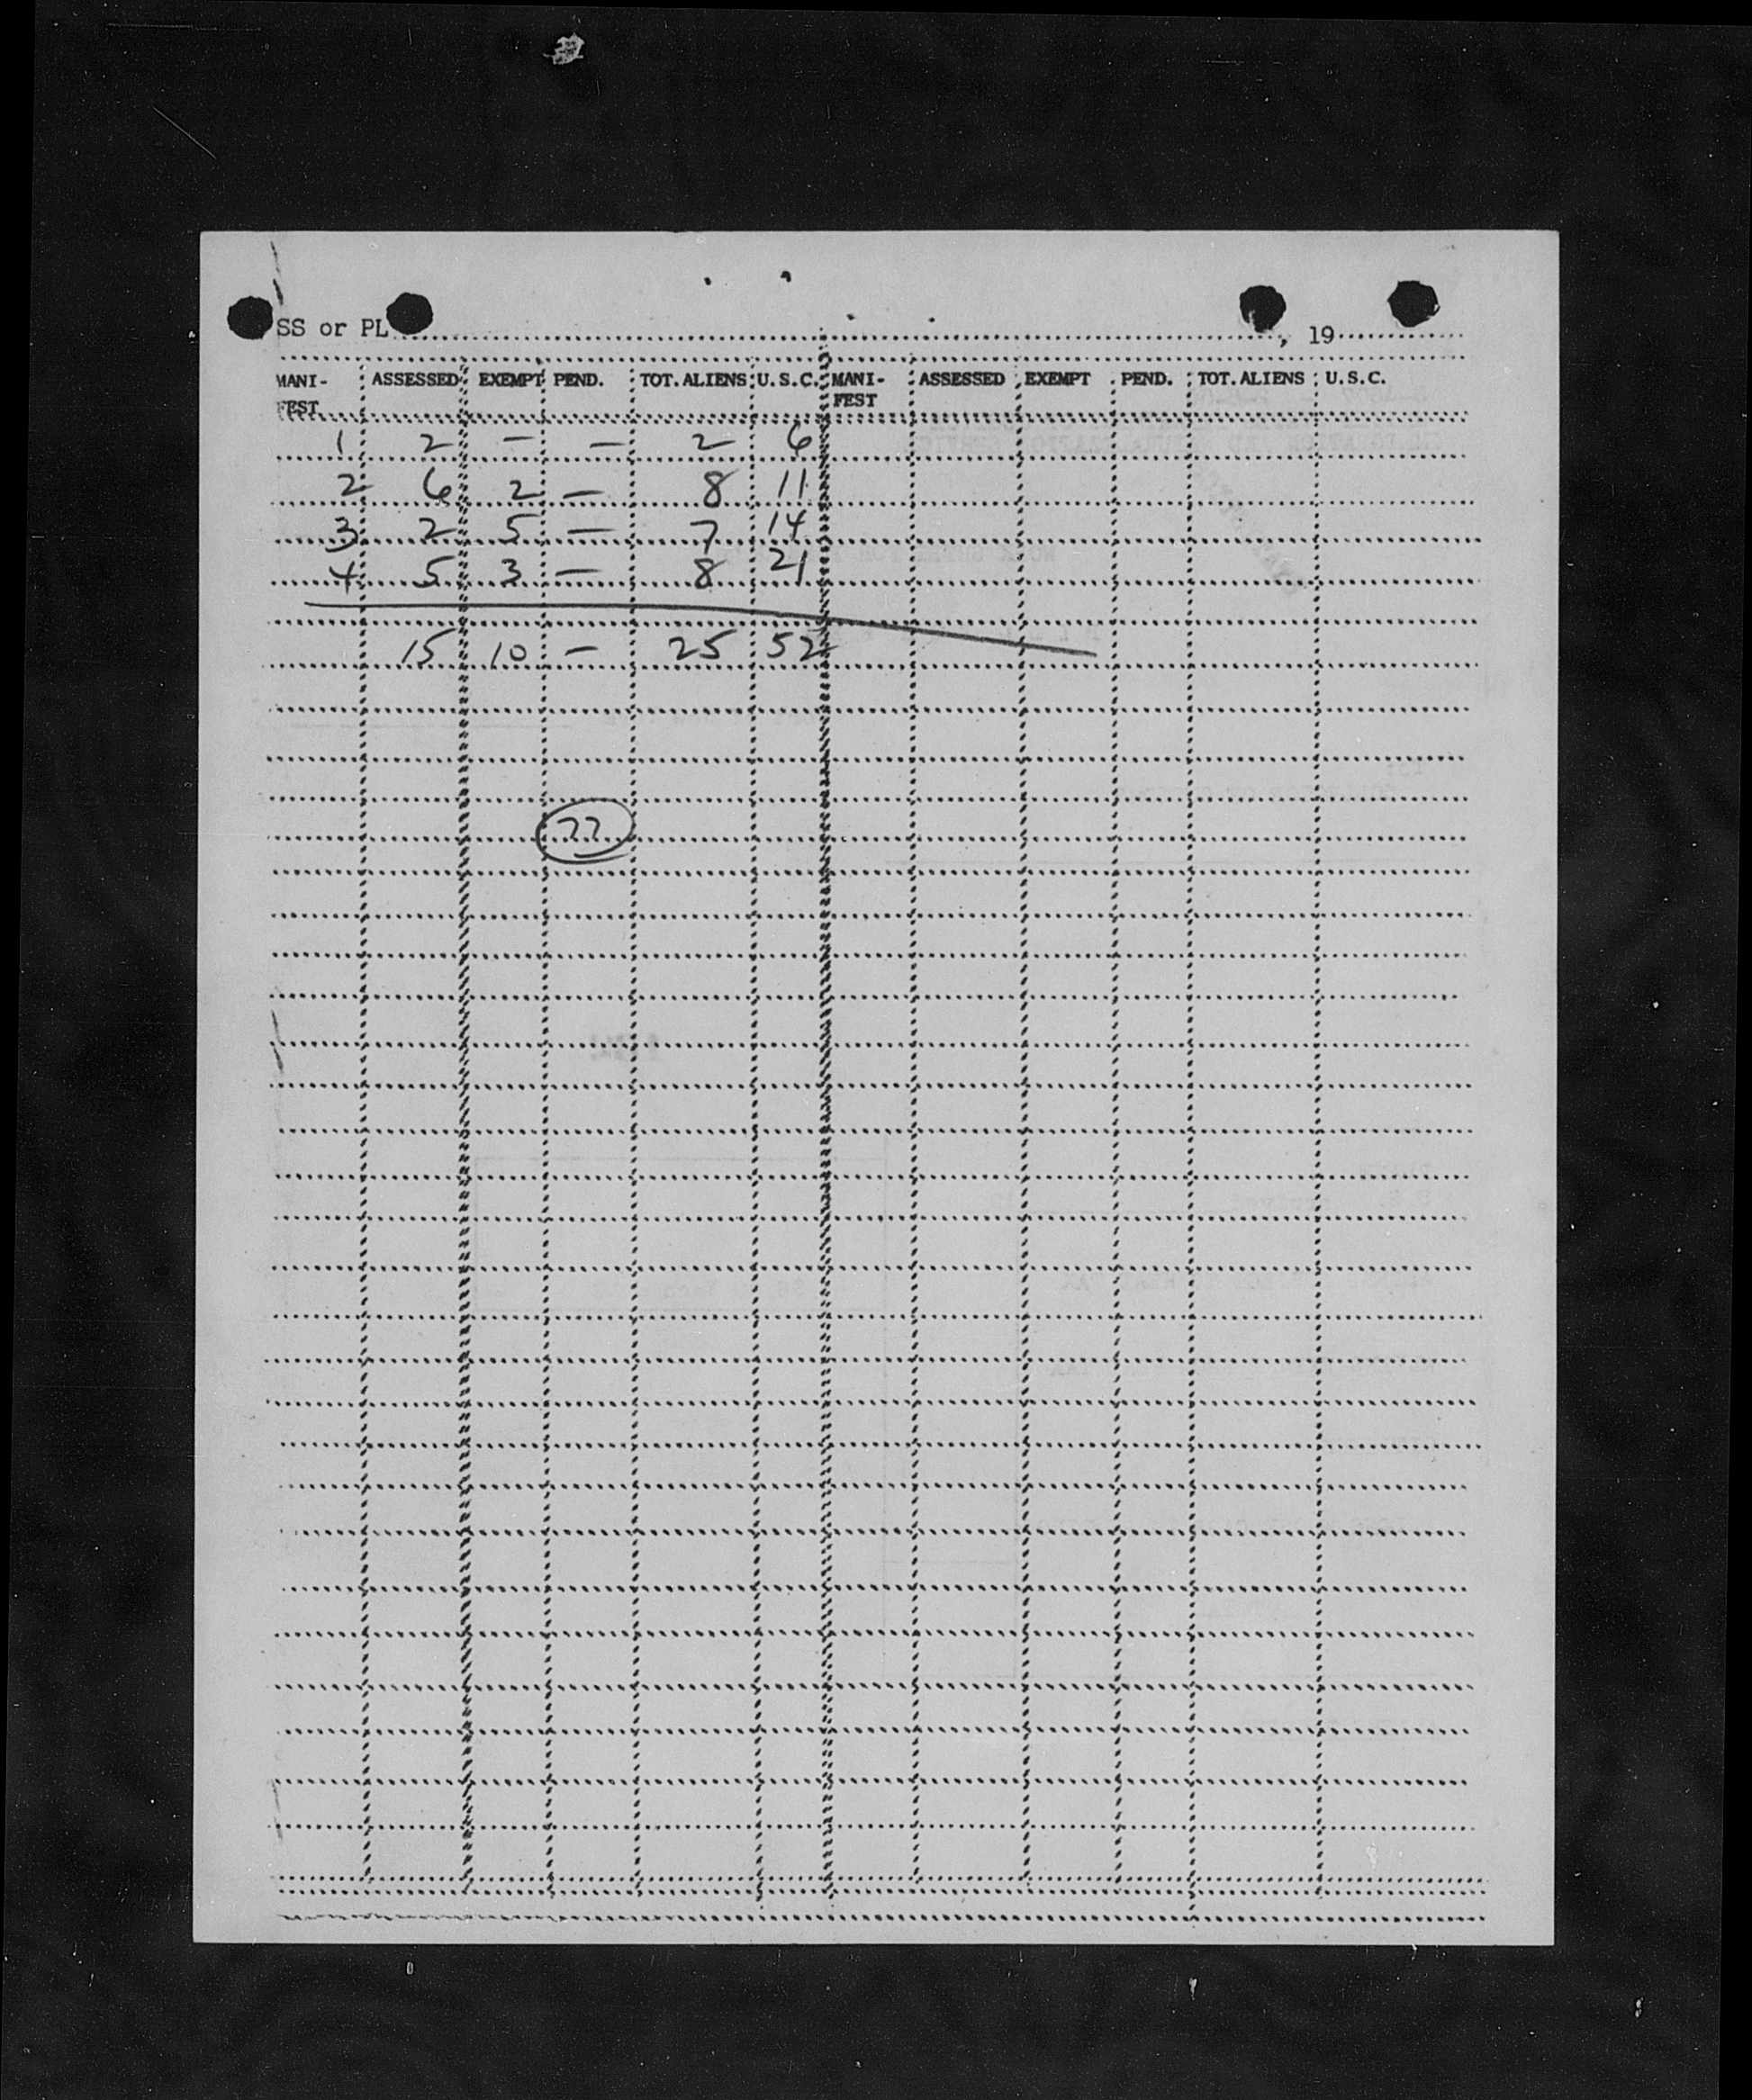 SS or PL , 19
MANI- ASSESSED EXEMPT PEND. TOT. ALIENS U.S.C. MANI- ASSESSED EXEMPT PEND. TOT. ALIENS U.S.C.
FEST FEST
1 2 - - 2 6
2 6 2 - 8 11
3 2 5 - 7 14
4 5 3 - 8 21
15 10 - 25 52
77